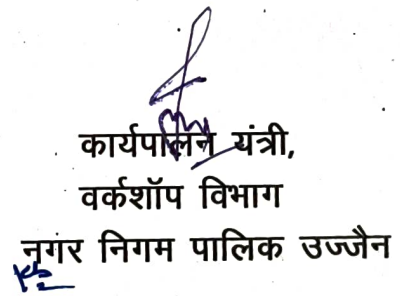 कार्यपालन यंत्री,
वर्कशॉप विभाग
नगर निगम पालिक उज्जैन